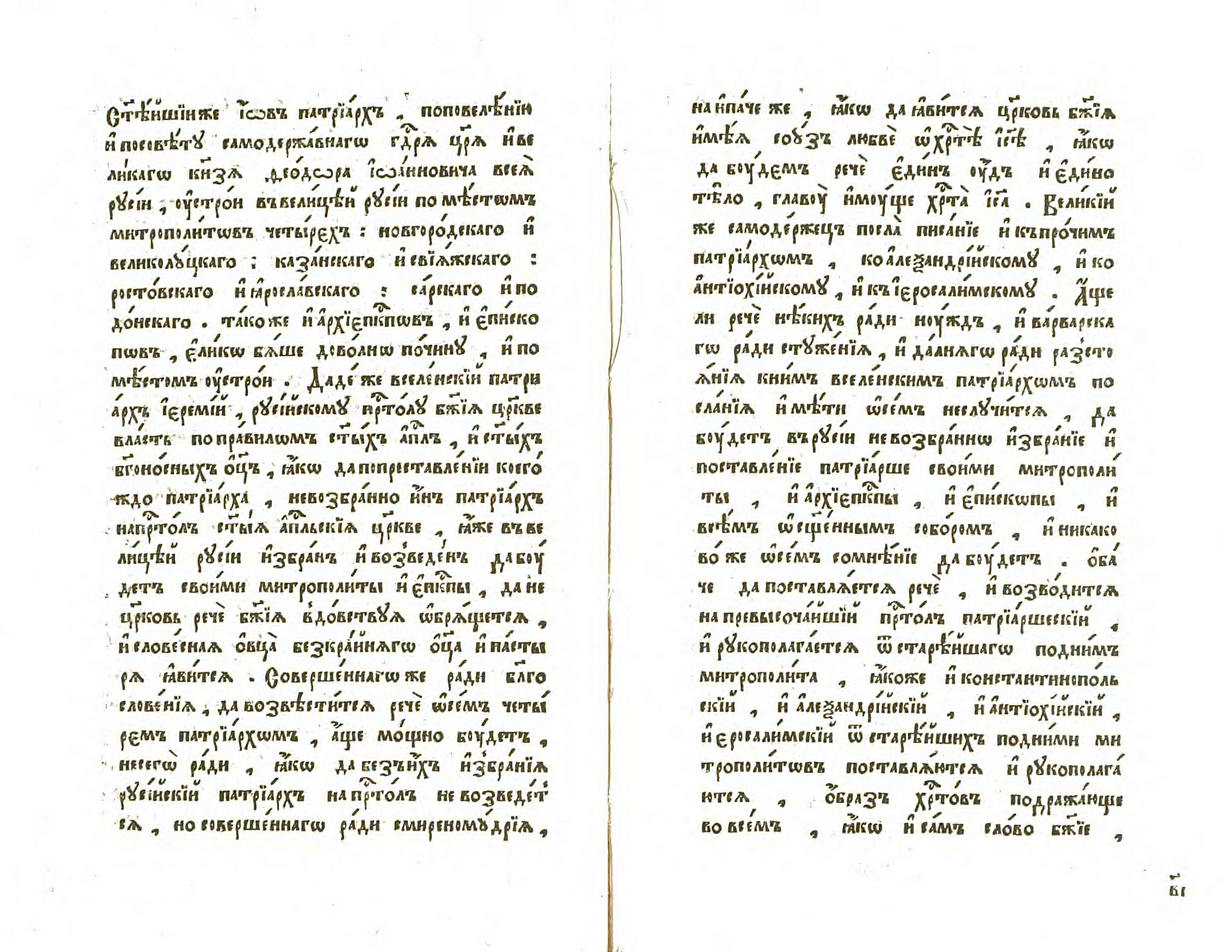 Ст҃ѣ́йшїи же і҆́ѡвъ патрїа́рхъ , поповелѣ́нїю
и҆ посовѣ́тꙋ самодержа́внагѡ гдⷭ҇рѧ цр҃ѧ и҆ ве
ликагѡ кнѧ́зѧ ѳео́дѡра і҆ѡа́нновича всеѧ̀
рꙋсі́и , оу҆стро́и въ вели́цѣй рꙋсі́и по мѣ́стѡмъ
митрополи́тѡвъ четы́рехъ : новгоро́дскаго и҆
великолꙋ́цкаго : каза́нскаго и҆ свїѧ́жскаго :
росто́вскаго и҆ ꙗ҆росла́вскаго : са́рскаго и҆ по
до́нскаго . тако́же и҆ а҆рхїепⷭ҇кпѡвъ , и҆ є҆пи́ско
пѡвъ , є҆ли́кѡ бѧ́ше дово́лнѡ по чи́нꙋ , и҆ по
мѣ́стомъ оу҆стро́и . Даде́ же вселе́нскїй патри
а́рхъ і҆еремі́й , рꙋсі́йскомꙋ прⷭ҇то́лꙋ бж҃їѧ цр҃кве
вла́сть по пра́вилѡмъ ст҃ы́хъ а҆пⷭ҇лъ , и҆ ст҃ы́хъ
бг҃оно́сныхъ ѻ҆ц҃ъ , ꙗ҆́кѡ да по преставле́нїи коего́
ждо патрїа́рха , невозбра́нно и҆́нъ патрїа́рхъ
на прⷭ҇то́лъ ст҃ы́ѧ а҆пⷭ҇льскїѧ цр҃кве , ꙗ҆́же въ ве
ли́цѣй рꙋсі́и и҆збра́нъ и҆ возведе́нъ да боу́
детъ свои́ми митрополи́ты и҆ є҆пⷭ҇кпы , да не
цр҃ковь речѐ бж҃їѧ вдо́вствꙋѧ ѡ҆брѧ́щетсѧ ,
и҆ слове́снаѧ ѻ҆вца̀ безкра́йнѧгѡ ѻ҆ц҃а и҆ па́сты
рѧ ꙗ҆ви́тсѧ . Соверше́ннагѡ же ра́ди бл҃го
слове́нїѧ , да возвѣсти́тсѧ речѐ ѡ҆ се́мъ четы́
ремъ патрїа́рхѡмъ , а҆́ще мо́щно боу́детъ ,
не сегѡ̀ ра́ди , ꙗ҆́кѡ да безъ и҆́хъ и҆збра́нїѧ
рꙋсі́йскїй патрїа́рхъ на прⷭ҇то́лъ не возведе́т
сѧ , но соверше́ннагѡ ра́ди смиреномꙋ́дрїѧ ,
на и҆па́че же , ꙗ҆́кѡ да ꙗ҆ви́тсѧ цр҃ковь бж҃їѧ
и҆мѣ́ѧ соу́зъ любвѐ ѡ҆ хрⷭ҇тѣ̀ і҆с҃ѣ , ꙗ҆́кѡ
да боу́демъ речѐ є҆ди́нъ оу҆́дъ и҆ є҆ди́но
тѣ́ло , главоу̀ и҆моу́ще хрⷭ҇та̀ і҆с҃а . Вели́кїй
же самоде́ржецъ посла̀ писа́нїе и҆ къ про́чимъ
патрїа́рхѡмъ , ко а҆леѯандрі́йскомꙋ , и҆ ко
а҆нтїохі́йскомꙋ , и҆ къ і҆еросали́мскомꙋ . А҆́ще
ли речѐ нѣ́кихъ ра́ди ноу́ждъ , и҆ ва́рварска
гѡ ра́ди стꙋже́нїѧ , и҆ да́лнѧгѡ ра́ди разсто
ѧ́нїѧ к ни́мъ вселе́нскимъ патрїа́рхѡмъ по
сла́нїѧ и҆мѣ́ти ѡ҆ се́мъ неслꙋчи́тсѧ , да
боу́детъ въ рꙋсі́и невозбра́ннѡ и҆збра́нїе и҆
поставле́нїе патрїа́рше свои́ми митрополи́
ты , и҆ а҆рхїепⷭ҇кпы , и҆ є҆пи́скѡпы , и҆
всѣ́мъ ѡ҆сщ҃е́ннымъ собо́ромъ , и҆ никако
во же ѡ҆ се́мъ сомнѣ́нїе да боу́детъ . ѻ҆ба́
че да поставлѧ́етсѧ речѐ , и҆ возво́дитсѧ
на превысоча́йшїй прⷭ҇то́лъ патрїа́ршескїй ,
и҆ рꙋкополага́етсѧ ѿ старѣ́йшагѡ под ни́мъ
митрополи́та , ꙗ҆́коже и҆ константинопо́ль
скїй , и҆ а҆леѯандрі́йскїй , и҆ а҆нтїохі́йскїй ,
и҆ є҆росали́мскїй ѿ старѣ́йшихъ под ни́ми ми
трополи́тѡвъ поставлѧ́ютсѧ и҆ рꙋкополага́
ютсѧ , ѻ҆́бразъ хрⷭ҇то́въ подража́юще
во все́мъ , ꙗ҆́кѡ и҆ са́мъ сло́во бж҃їе ,
в҃і